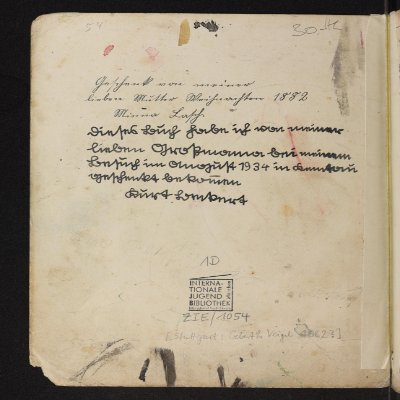 54
30.-
Geschenk von meiner
lieben Mutter Weihnachten 1882
Minna Lasch.
Dieses Buch habe ich von meiner
lieben Großmama bei meinem
Besuch im August 1934 in
geschenkt bekommen
Kurt
1D
INTERNA-
TIONALE
JUGEND
BIBLIOTHEK
ZIE/1054
[Stuttgart: